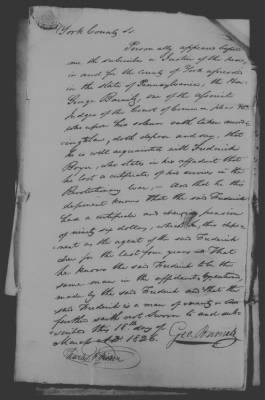 York County Ss.
Personally appears before
me the subscriber a Justice of the peace,
in and for the County of York aforesaid
in the State of Pennsylvania, the Hon.
George Barnitz, one of the associate
Judges of the Court of Common pleas
who upon his solemn oath taken
doth depose and say, that
he is well acquainted with Frederick
who states in his affidavit that
he lost a certificate of his services in the
Revolutionary War, — And that he this
deponent knows that the said Frederick
had a certificate and drew a pension
of ninety six dollars, which he, this
as the agent of the said Frederick
for the last four years That
he knows the said Frederick to be the
same man in the affidavit
made by the said Frederick and that the
said Frederick is a man of
further saith not Sworn to and sub-
scribed this 18th day of
1826.
Geo. Barnitz